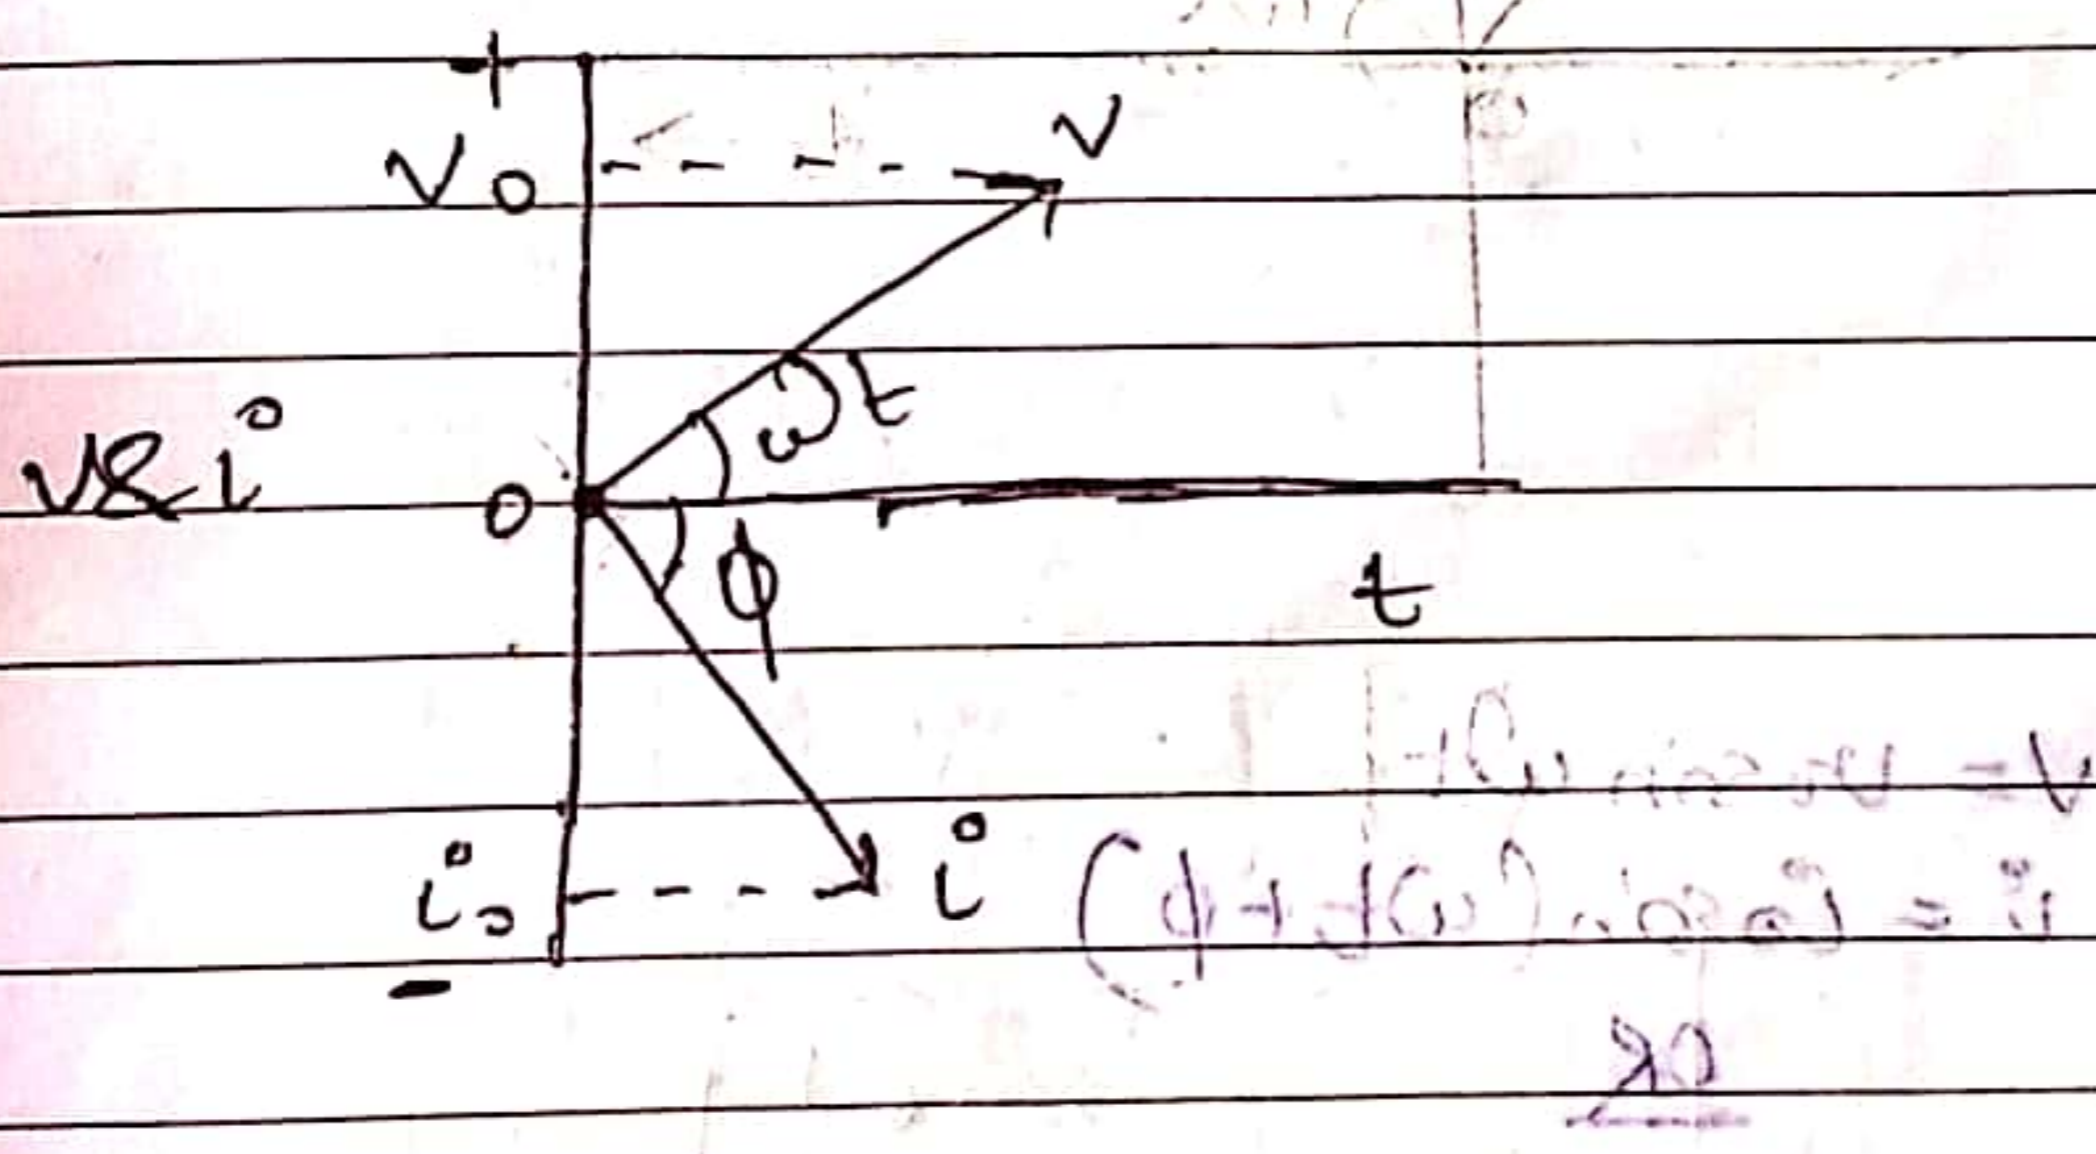 +
V₀ v
ωt
v&i 0
ϕ
t
i₀ i
-